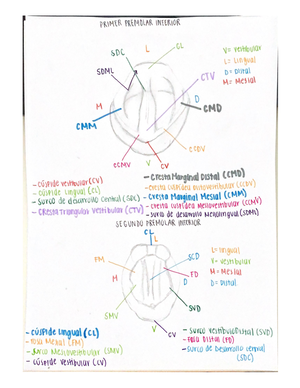 PRIMER PREMOLAR INFERIOR
L
CL
SDC
SDML
V= vestibular
L= Lingual
D= Distal
M= Mesial
CTV
M
D
CMM
CMD
CCMV
V
CV
CCDV
- Cúspide vestibular (CV)
- Cúspide Lingual (CL)
- Surco de desarrollo central (SDC)
- Cresta Triangular Vestibular (CTV)
- Cresta Marginal Distal (CMD)
- Cresta cuspídea distovestibular (CCDV)
- Cresta Marginal Mesial (CMM)
- Cresta cuspídea mesiovestibular (CCMV)
- Surco de desarrollo Mesiolingual (SDML)
SEGUNDO PREMOLAR INFERIOR
CL
L
FM
SCD
M
FD
D
SMV
SVD
V
CV
L= Lingual
V= vestibular
M= Mesial
D= Distal
- Cúspide Lingual (CL)
- Fosa Mesial (FM)
- Surco Mesiovestibular (SMV)
- Cúspide vestibular (CV)
- Surco vestibuloDistal (SVD)
- Fosa Distal (FD)
- Surco de Desarrollo central (SDC)